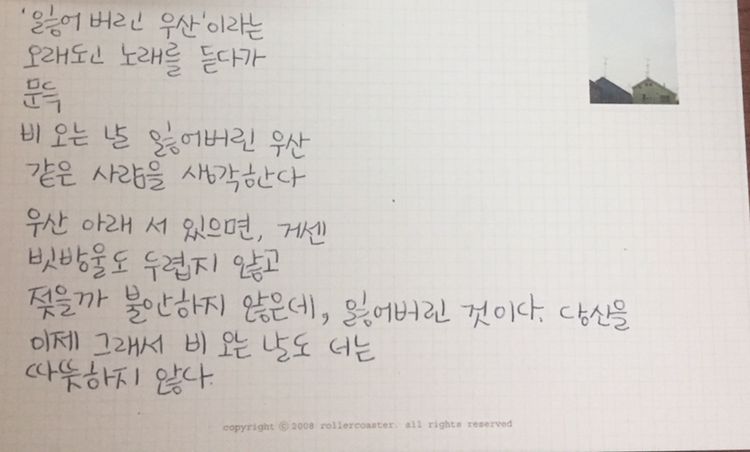 '잃어 버린 우산'이라는
오래도니 노래를 듣다가
문득
비 오는 날 잃어버린 우산
같은 사람을 생각한다
우산 아래 서 있으면, 거센
빗방울도 두렵지 않고
젖을까 불안하지 않은데, 잃어버린 것이다. 당신을
이제 그래서 비 오는 날도 더는
따뜻하지 않다.
copyright ⓒ 2008 rollercoaster. all rights reserved